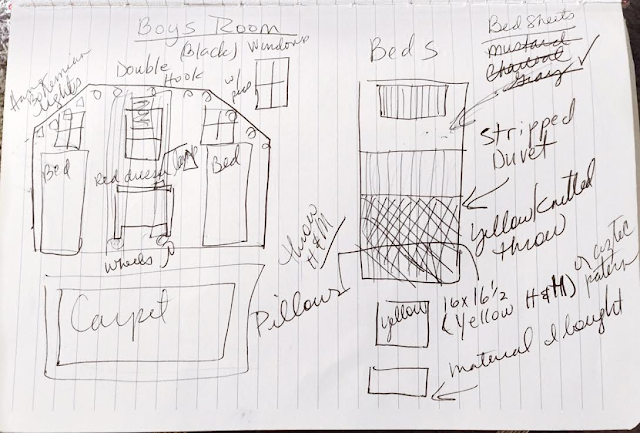 Boys Room
(Black)
Windows
Double
Hook
Bohemian
lights
w/
Bed
Red dresser
Bed
wheels
Carpet
throw
H&M
Beds
Bed Sheets
Mustard
Charcoal
Gray
Stripped
Duvet
Yellow Knitted
throw
Pillows
yellow
16 x 16 1/2
(Yellow H&M)
or aztec
patern
material I bought